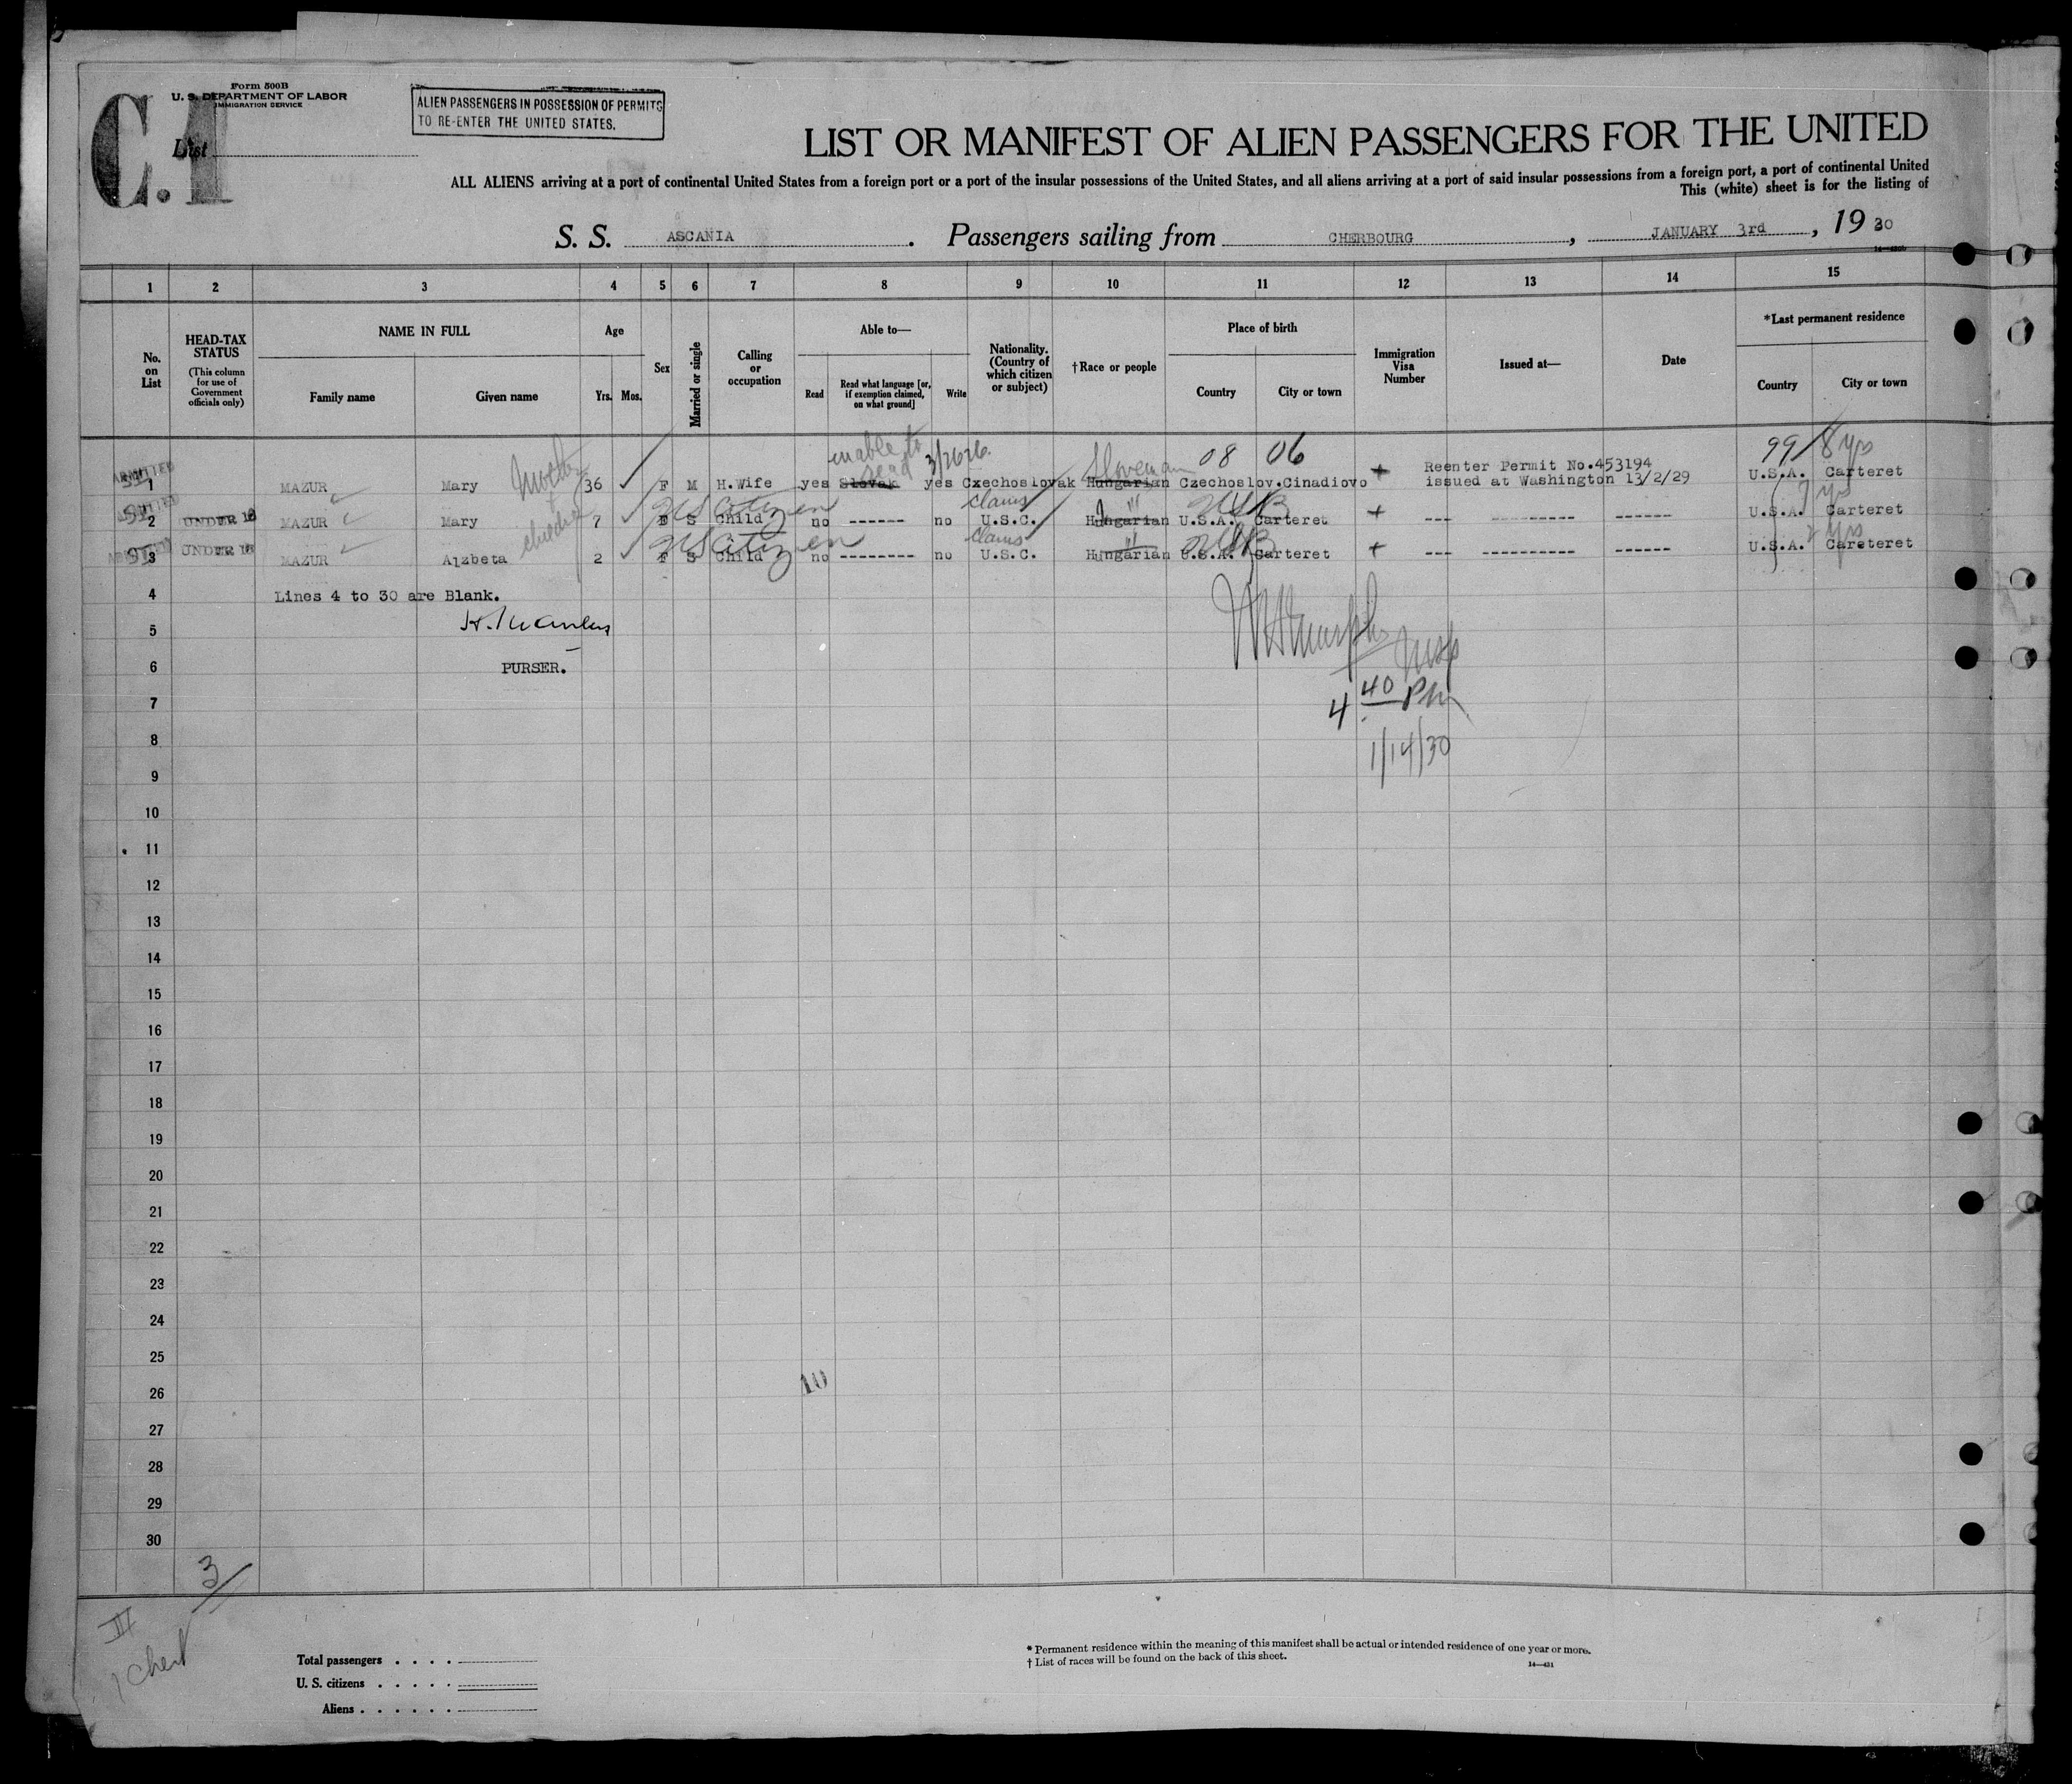 Form 500B
U. S. DEPARTMENT OF LABOR
IMMIGRATION SERVICE
C.1
List
ALIEN PASSENGERS IN POSSESSION OF PERMITS
TO RE-ENTER THE UNITED STATES.
LIST OR MANIFEST OF ALIEN PASSENGERS FOR THE UNITED
ALL ALIENS arriving at a port of continental United States from a foreign port or a port of the insular possessions of the United States, and all aliens arriving at a port of said insular possessions from a foreign port, a port of continental United
This (white) sheet is for the listing of
S. S. ASCANIA. Passengers sailing from CHERBOURG, JANUARY 3rd, 1930
1 2 3 4 5 6 7 8 9 10 11 12 13 14 15
No. on List
HEAD-TAX STATUS
(This column for use of Government officials only)
NAME IN FULL
Family name
Given name
Age
Yrs. Mos.
Sex
Married or single
Calling or occupation
Able to—
Read
Read what language [or, if exemption claimed, on what ground]
Write
Nationality. (Country of which citizen or subject)
†Race or people
Place of birth
Country
City or town
Immigration Visa Number
Issued at—
Date
*Last permanent residence
Country
City or town
unable to read 3/26 26. Slovenian 08 06 99/ 8 yrs
ADMITTED
1 MAZUR Mary Mother 36 F M H.Wife yes Slovak yes Czechoslovak Hungarian Czechoslov. Cinadiovo + Reenter Permit No.453194 issued at Washington 13/2/29 U.S.A. Carteret
ADMITTED US citizen claims USB 7 yrs
2 UNDER 16 MAZUR Mary 7 F S Child no ------ no U.S.C. Hungarian U.S.A. Carteret + --- --------- ------ U.S.A. Carteret
ADMITTED US citizen claims USB 2 yrs
3 UNDER 16 MAZUR Alzbeta 2 F S Child no -------- no U.S.C. Hungarian U.S.A. Carteret + --- ---------- ------ U.S.A. Careteret
4 Lines 4 to 30 are Blank.
5
6 PURSER.
7
4 40 PM
8
1/14/30
9
10
11
12
13
14
15
16
17
18
19
20
21
22
23
24
25
26
10
27
28
29
30
3/
III
Total passengers . . . .
U. S. citizens . . . . .
Aliens . . . . . .
* Permanent residence within the meaning of this manifest shall be actual or intended residence of one year or more.
† List of races will be found on the back of this sheet.
14—431